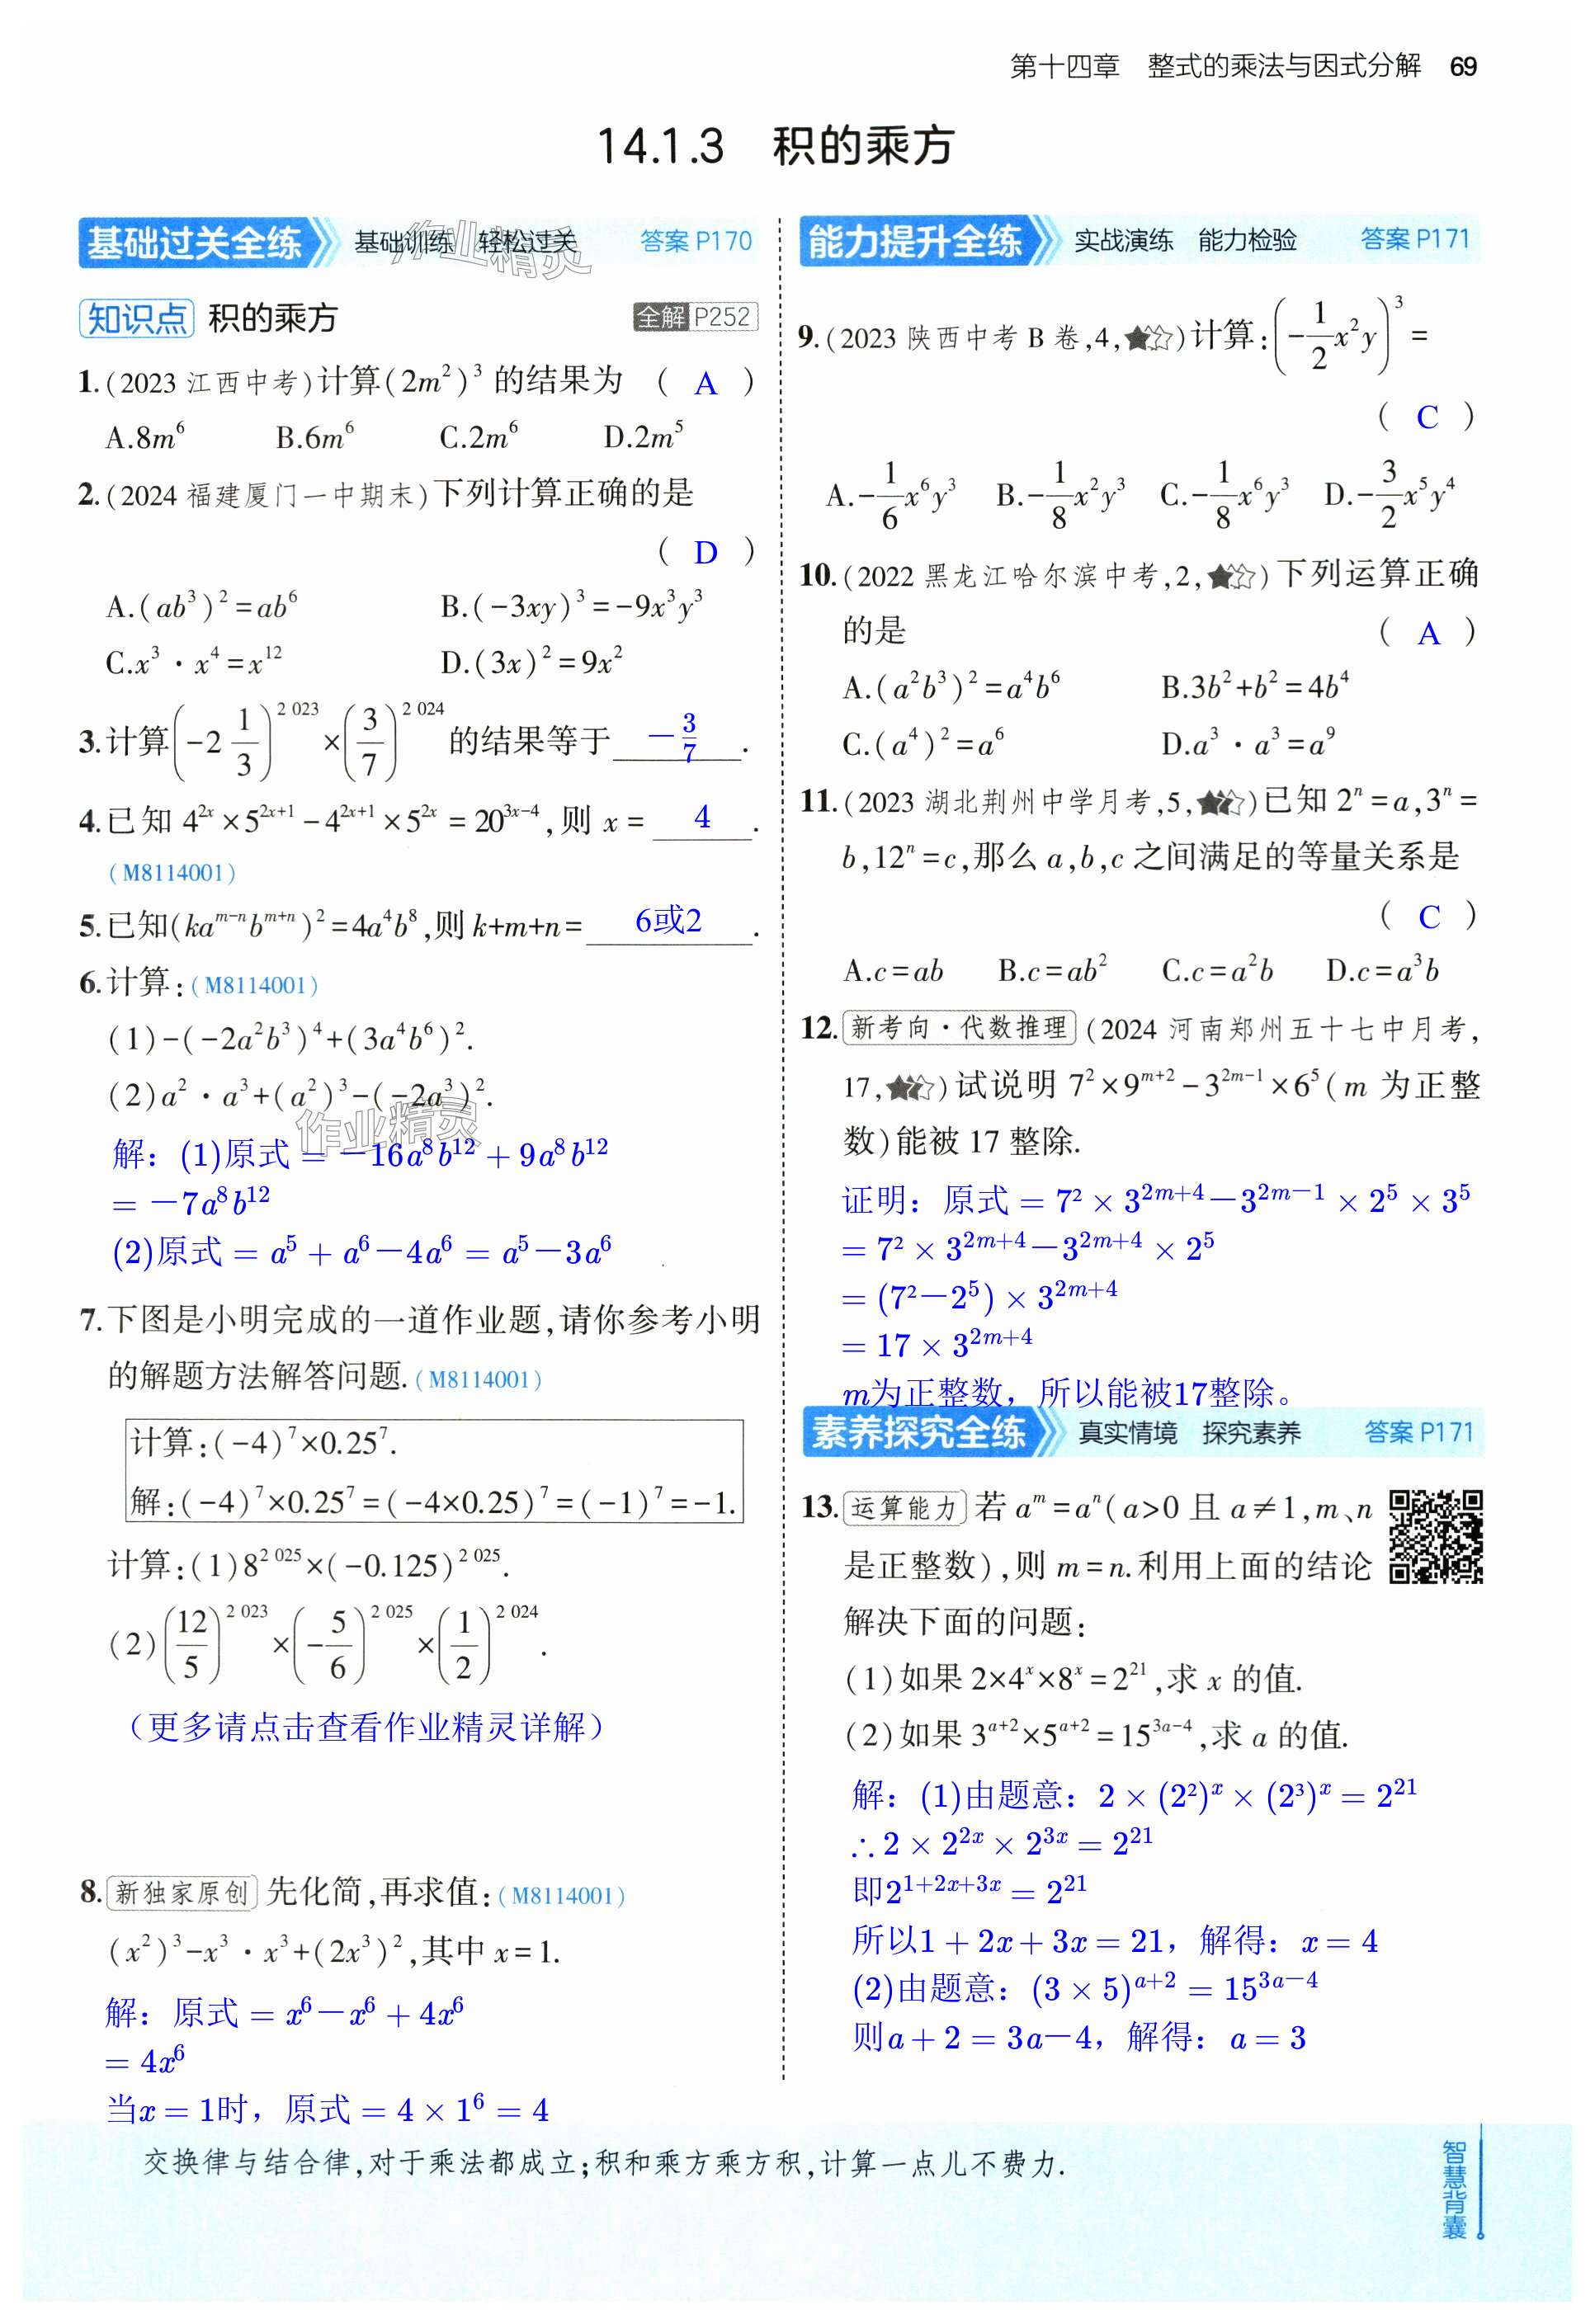 第十四章 整式的乘法与因式分解 69
14.1.3 积的乘方
基础过关全练 基础训练 轻松过关 答案 P170
作业精灵
知识点 积的乘方 全解 P252
1.(2023 江西中考)计算(2m²)³ 的结果为 ( A )
A.8m⁶ B.6m⁶ C.2m⁶ D.2m⁵
2.(2024 福建厦门一中期末)下列计算正确的是
( D )
A.(ab³)²=ab⁶ B.(-3xy)³=-9x³y³
C.x³·x⁴=x¹² D.(3x)²=9x²
3.计算(-2 1/3)^{2 023}×(3/7)^{2 024}的结果等于 -3/7 .
4.已知 4^{2x}×5^{2x+1}-4^{2x+1}×5^{2x}=20^{3x-4},则 x= 4 .
(M8114001)
5.已知(ka^{m-n}b^{m+n})²=4a⁴b⁸,则 k+m+n= 6或2 .
6.计算:(M8114001)
(1)-(-2a²b³)⁴+(3a⁴b⁶)².
(2)a²·a³+(a²)³-(-2a³)².
作业精灵
解：(1)原式=-16a⁸b¹²+9a⁸b¹²
=-7a⁸b¹²
(2)原式=a⁵+a⁶-4a⁶=a⁵-3a⁶
7.下图是小明完成的一道作业题,请你参考小明
的解题方法解答问题.(M8114001)
计算:(-4)⁷×0.25⁷.
解:(-4)⁷×0.25⁷=(-4×0.25)⁷=(-1)⁷=-1.
计算:(1)8^{2 025}×(-0.125)^{2 025}.
(2)(12/5)^{2 023}×(-5/6)^{2 025}×(1/2)^{2 024}.
（更多请点击查看作业精灵详解）
8.新独家原创 先化简,再求值:(M8114001)
(x²)³-x³·x³+(2x³)²,其中 x=1.
解：原式=x⁶-x⁶+4x⁶
=4x⁶
当x=1时，原式=4×1⁶=4
能力提升全练 实战演练 能力检验 答案 P171
9.(2023 陕西中考 B 卷,4,★☆☆)计算:(-1/2 x²y)³=
( C )
A.-1/6 x⁶y³ B.-1/8 x²y³ C.-1/8 x⁶y³ D.-3/2 x⁵y⁴
10.(2022 黑龙江哈尔滨中考,2,★☆☆)下列运算正确
的是 ( A )
A.(a²b³)²=a⁴b⁶ B.3b²+b²=4b⁴
C.(a⁴)²=a⁶ D.a³·a³=a⁹
11.(2023 湖北荆州中学月考,5,★★☆)已知 2ⁿ=a,3ⁿ=
b,12ⁿ=c,那么 a,b,c 之间满足的等量关系是
( C )
A.c=ab B.c=ab² C.c=a²b D.c=a³b
12.新考向·代数推理 (2024 河南郑州五十七中月考,
17,★★☆)试说明 7²×9^{m+2}-3^{2m-1}×6⁵(m 为正整
数)能被 17 整除.
证明：原式=7²×3^{2m+4}-3^{2m-1}×2⁵×3⁵
=7²×3^{2m+4}-3^{2m+4}×2⁵
=(7²-2⁵)×3^{2m+4}
=17×3^{2m+4}
m为正整数，所以能被17整除。
素养探究全练 真实情境 探究素养 答案 P171
13.运算能力 若 a^m=a^n(a>0 且 a≠1,m、n
是正整数),则 m=n.利用上面的结论
解决下面的问题:
(1)如果 2×4^x×8^x=2²¹,求 x 的值.
(2)如果 3^{a+2}×5^{a+2}=15^{3a-4},求 a 的值.
解：(1)由题意：2×(2²)^x×(2³)^x=2²¹
∴2×2^{2x}×2^{3x}=2²¹
即2^{1+2x+3x}=2²¹
所以1+2x+3x=21，解得：x=4
(2)由题意：(3×5)^{a+2}=15^{3a-4}
则a+2=3a-4，解得：a=3
交换律与结合律,对于乘法都成立;积和乘方乘方积,计算一点儿不费力.
智慧背囊